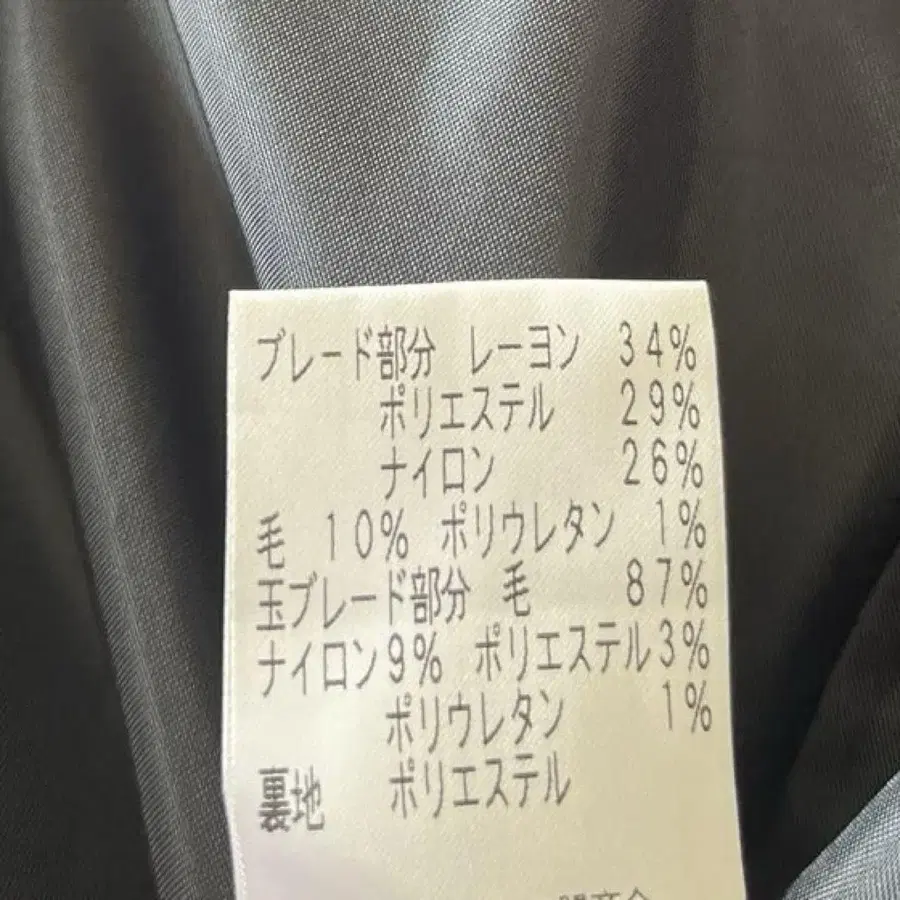 ブレード部分 レーヨン 34%
ポリエステル 29%
ナイロン 26%
毛 10% ポリウレタン 1%
玉ブレード部分 毛 87%
ナイロン9% ポリエステル3%
ポリウレタン 1%
裏地 ポリエステル